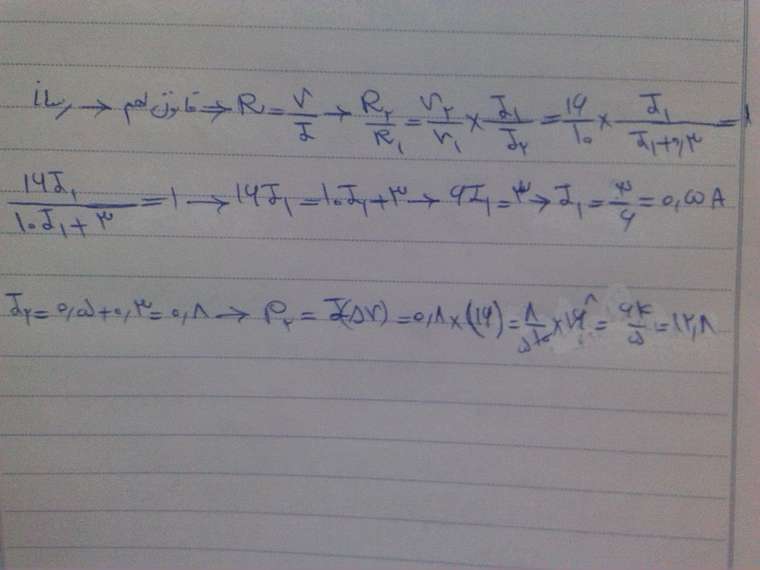 رسانا → قانون اهم → R = V/I → R۲/R۱ = V۲/V۱ × I۱/I۲ = ۱۶/۱۰ × I۱/(I۱+۰٫۳) = ۱
۱۶I۱/(۱۰I۱+۳) = ۱ → ۱۶I۱ = ۱۰I۱+۳ → ۶I۱ = ۳ → I۱ = ۳/۶ = ۰٫۵ A
I۲ = ۰٫۵ + ۰٫۳ = ۰٫۸ → P۲ = I(ΔV) = ۰٫۸ × (۱۶) = ۸/۱۰ × ۱۶ = ۶۴/۵ = ۱۲٫۸